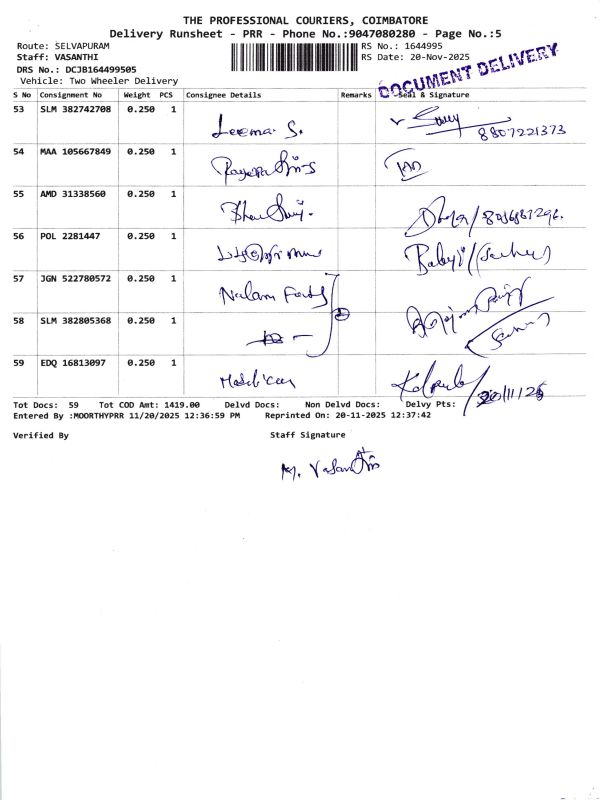 THE PROFESSIONAL COURIERS, COIMBATORE
Delivery Runsheet - PRR - Phone No.:9047080280 - Page No.:5
Route: SELVAPURAM
RS No.: 1644995
Staff: VASANTHI
RS Date: 20-Nov-2025
DRS No.: DCJB164499505
DOCUMENT DELIVERY
Vehicle: Two Wheeler Delivery
S No Consignment No Weight PCS Consignee Details Remarks Seal & Signature
53 SLM 382742708 0.250 1
Leema S.
8807221373
54 MAA 105667849 0.250 1
55 AMD 31338560 0.250 1
56 POL 2281447 0.250 1
57 JGN 522780572 0.250 1
Nalam
58 SLM 382805368 0.250 1
59 EDQ 16813097 0.250 1
20/11/25
Tot Docs: 59 Tot COD Amt: 1419.00 Delvd Docs: Non Delvd Docs: Delvy Pts:
Entered By :MOORTHYPRR 11/20/2025 12:36:59 PM Reprinted On: 20-11-2025 12:37:42
Verified By Staff Signature
M. Vasanthi